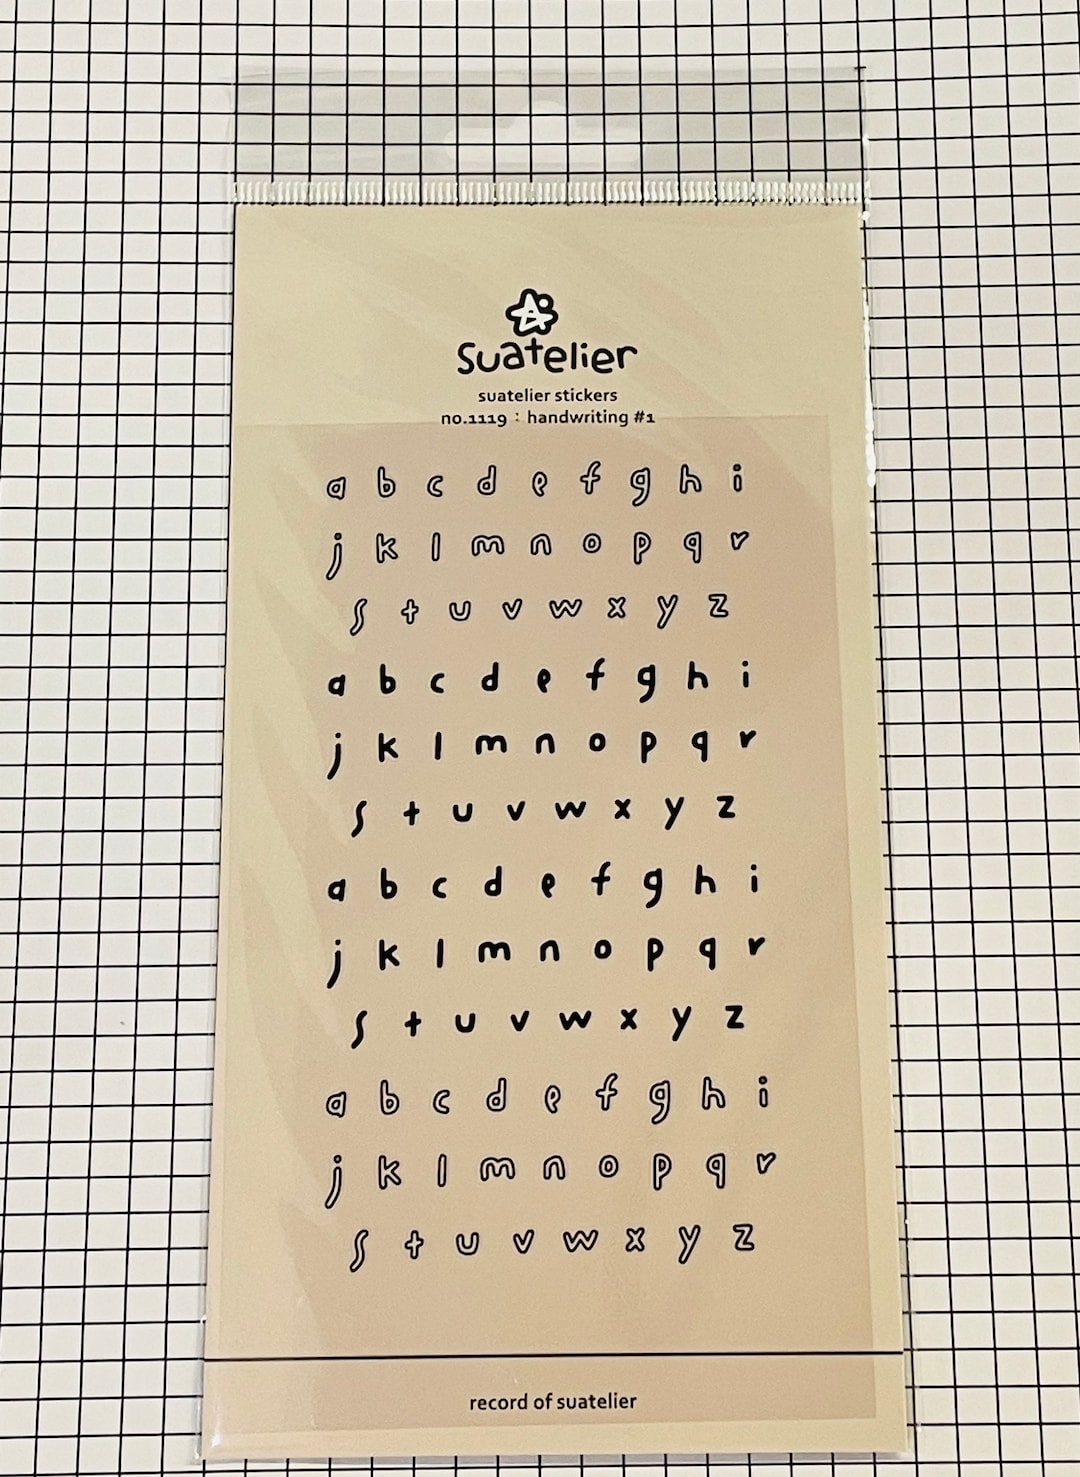 suatelier
suatelier stickers
no.1119 : handwriting #1
a b c d e f g h i
j k l m n o p q r
s t u v w x y z
a b c d e f g h i
j k l m n o p q r
s t u v w x y z
a b c d e f g h i
j k l m n o p q r
s t u v w x y z
a b c d e f g h i
j k l m n o p q r
s t u v w x y z
record of suatelier